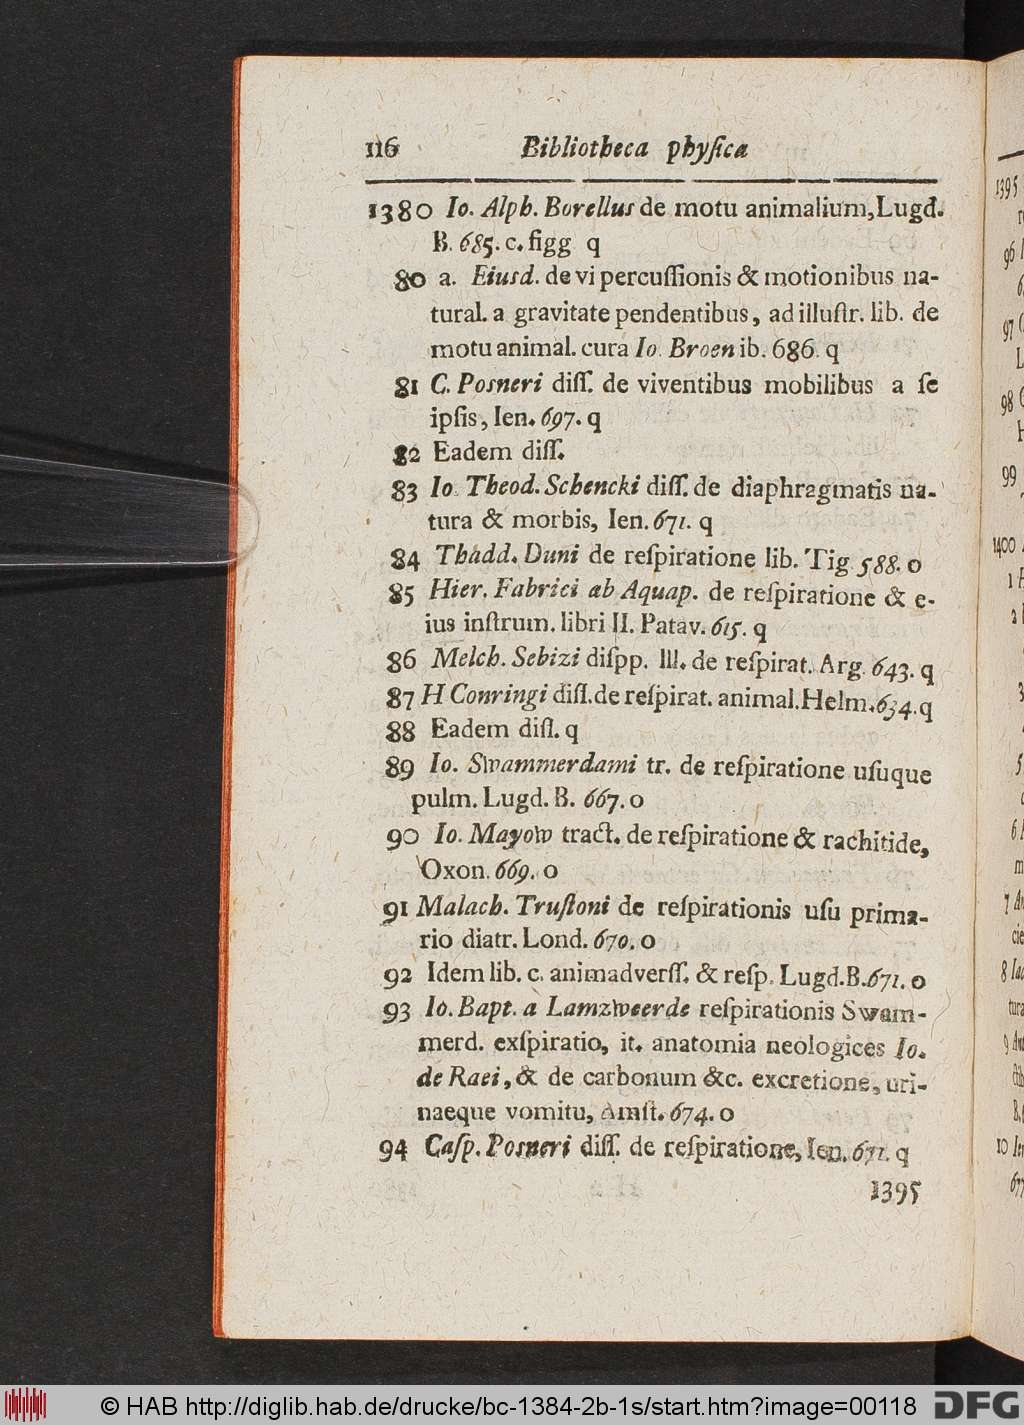 116 Bibliotheca phyſica
1380 Io. Alph. Borellus de motu animalium, Lugd.
B. 685. c. figg q
80 a. Eiusd. de vi percuſſionis & motionibus na-
tural. a gravitate pendentibus, ad illuſtr. lib. de
motu animal. cura Io. Broen ib. 686. q
81 C. Posneri diſſ. de viventibus mobilibus a ſe
ipſis, Ien. 697. q
82 Eadem diſſ.
83 Io. Theod. Schencki diſſ. de diaphragmatis na-
tura & morbis, Ien. 671. q
84 Thadd. Duni de reſpiratione lib. Tig. 588. o
85 Hier. Fabrici ab Aquap. de reſpiratione & e-
ius inſtrum. libri II. Patav. 615. q
86 Melch. Sebizi diſpp. III. de reſpirat. Arg. 643. q
87 H Conringi diſſ. de reſpirat. animal. Helm. 634. q
88 Eadem diſſ. q
89 Io. Swammerdami tr. de reſpiratione uſuque
pulm. Lugd. B. 667. o
90 Io. Mayow tract. de reſpiratione & rachitide,
Oxon. 669. o
91 Malach. Truſtoni de reſpirationis uſu prima-
rio diatr. Lond. 670. o
92 Idem lib. c. animadverſſ. & reſp. Lugd. B. 671. o
93 Io. Bapt. a Lamzweerde reſpirationis Swam-
merd. exſpiratio, it. anatomia neologices Io.
de Raei, & de carbonum &c. excretione, uri-
naeque vomitu, Amſt. 674. o
94 Caſp. Posneri diſſ. de reſpiratione, Ien. 671. q
1395
1395
96
97
98
99
1400
© HAB http://diglib.hab.de/drucke/bc-1384-2b-1s/start.htm?image=00118
DFG